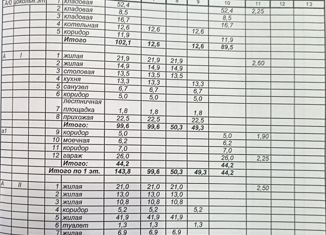 8 9 10 11 12 13
А/О цокольн эт. 1 кладовая 52,4 52,4 2,25
2 кладовая 8,5 8,5
3 кладовая 16,7 16,7
4 котельная 12,6 12,6 12,6
5 коридор 11,9 11,9
Итого 102,1 12,6 12,6 89,5
А I 1 жилая 21,9 21,9 21,9 2,60
2 жилая 14,9 14,9 14,9
3 столовая 13,5 13,5 13,5
4 кухня 13,3 13,3 13,3
5 санузел 6,7 6,7 6,7
6 коридор 5,0 5,0 5,0
лестничная
7 площадка 1,8 1,8 1,8
8 прихожая 22,5 22,5 22,5
Итого: 99,6 99,6 50,3 49,3
а1 9 коридор 5,0 5,0 1,90
10 моечная 6,2 6,2
11 котельная 7,0 7,0
12 гараж 26,0 26,0 2,25
Итого: 44,2 44,2
Итого по 1 эт. 143,8 99,6 50,3 49,3 44,2
А II 1 жилая 21,0 21,0 21,0 2,50
2 жилая 13,0 13,0 13,0
3 жилая 10,8 10,8 10,8
4 коридор 5,2 5,2 5,2
5 жилая 41,9 41,9 41,9
6 туалет 1,3 1,3 1,3
7 жилая 6,9 6,9 6,9